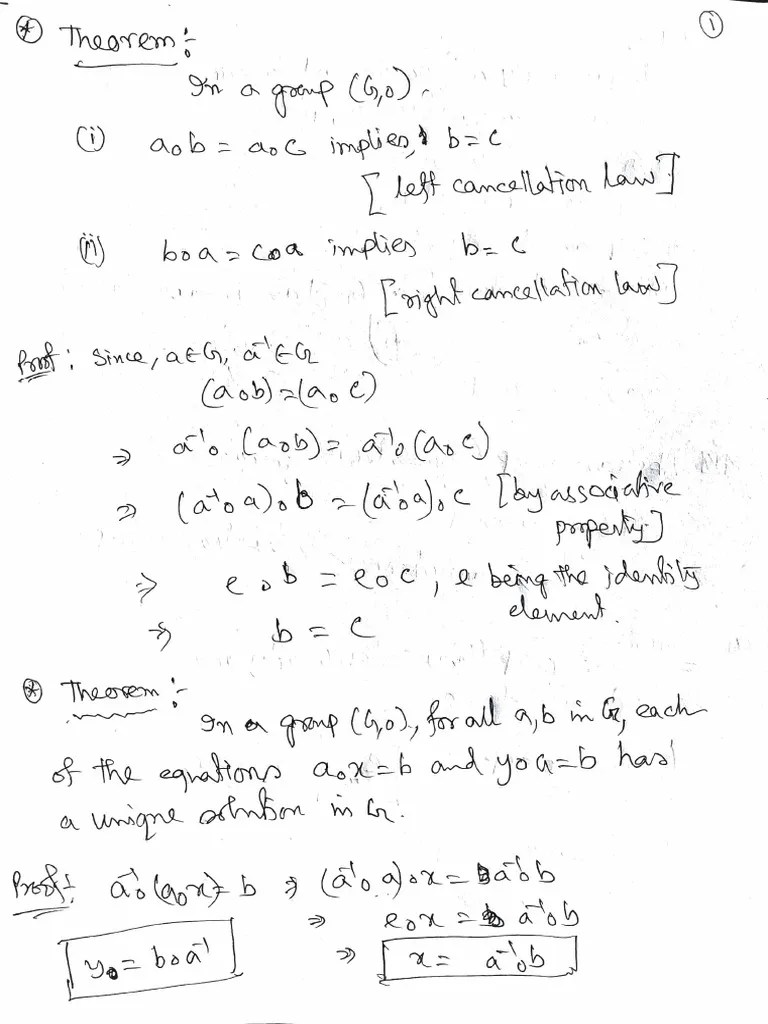 ①
⊛ Theorem :-
In a group (G,o).
(i) aob = aoc implies, b = c
[left cancellation law]
(ii) boa = coa implies b = c
[right cancellation law]
Proof : Since, a∈G, a⁻¹∈G
(aob) = (aoc)
⇒ a⁻¹o (aob) = a⁻¹o (aoc)
⇒ (a⁻¹oa)ob = (a⁻¹oa)oc [by associative
property]
⇒ eob = eoc, e being the identity
element.
⇒ b = c
⊛ Theorem :-
In a group (G,o), for all a,b in G, each
of the equations aox=b and yoa=b has
a unique solution in G.
Proof :- a⁻¹o(aox)=b ⇒ (a⁻¹oa)ox = a⁻¹ob
⇒ eox = a⁻¹ob
y = boa⁻¹ ⇒ x = a⁻¹ob